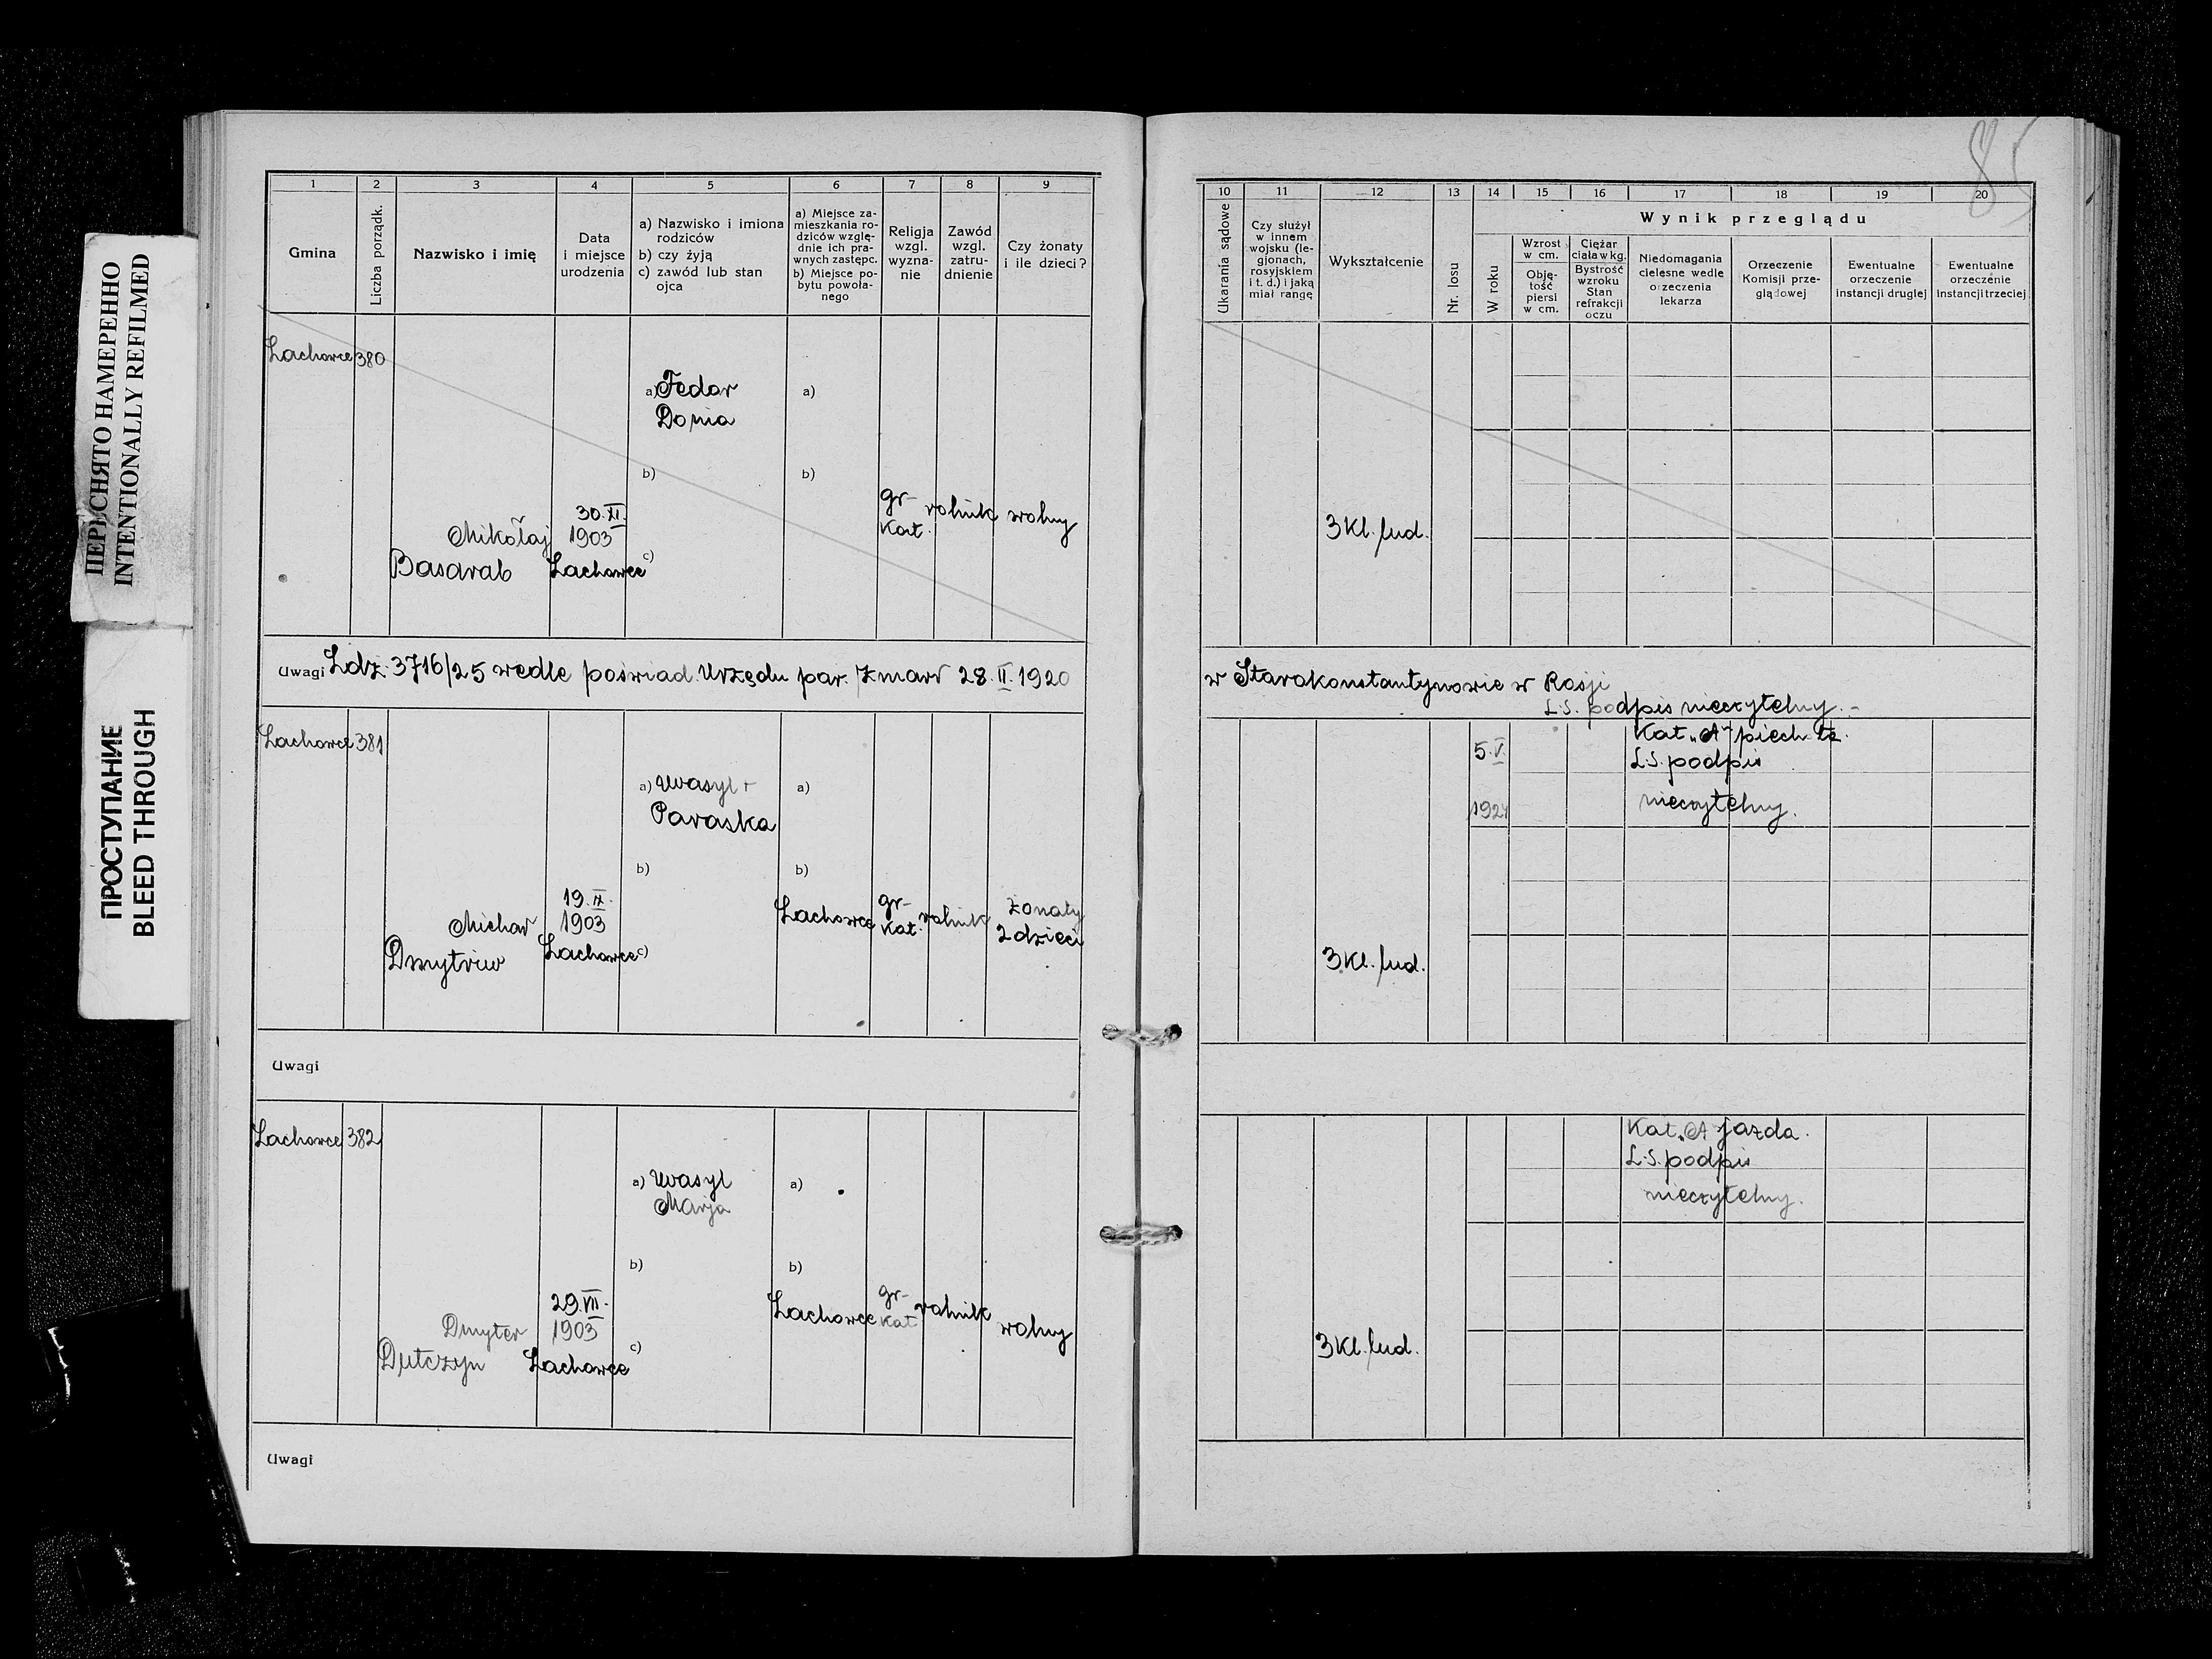 85
ПЕРЕСНЯТО НАМЕРЕННО
INTENTIONALLY REFILMED
ПРОСТУПАНИЕ
BLEED THROUGH
1 2 3 4 5 6 7 8 9
Gmina
Liczba porządk.
Nazwisko i imię
Data
i miejsce
urodzenia
a) Nazwisko i imiona
rodziców
b) czy żyją
c) zawód lub stan
ojca
a) Miejsce za-
mieszkania ro-
dziców wzglę-
dnie ich pra-
wnych zastępc.
b) Miejsce po-
bytu powoła-
nego
Religja
wzgl.
wyzna-
nie
Zawód
wzgl.
zatru-
dnienie
Czy żonaty
i ile dzieci?
10 11 12 13 14 15 16 17 18 19 20
Ukarania sądowe
Czy służył
w innem
wojsku (le-
gjonach,
rosyjskiem
i t. d.) i jaką
miał rangę
Wykształcenie
Nr. losu
Wynik przeglądu
W roku
Wzrost
w cm.
Obję-
tość
piersi
w cm.
Ciężar
ciała w kg.
Bystrość
wzroku
Stan
refrakcji
oczu
Niedomagania
cielesne wedle
orzeczenia
lekarza
Orzeczenie
Komisji prze-
glądowej
Ewentualne
orzeczenie
instancji drugiej
Ewentualne
orzeczenie
instancji trzeciej
Lachowce 380
a) Fedor
Donia
a)
b)
b)
Mikołaj
Basarab
30.XI.
1903
Lachowce
c)
gr-
kat.
rolnik
wolny
3 Kl. lud.
Uwagi Ldz. 3716/25 wedle poświad. Urzędu par. zmarł 28.II.1920
w Starokonstantynowie w Rosji
L.S. podpis nieczytelny.-
Lachowce 381
a) Wasyl +
Paraska
a)
b)
b)
Michał
Dmytriw
19.IX.
1903
Lachowce
c)
Lachowce
gr-
kat.
rolnik
żonaty
2 dzieci
3 Kl. lud.
5.V.
1924
Kat „A" piech. tz.
L.S. podpis
nieczytelny.
Uwagi
Lachowce 382
a) Wasyl
Marja
a)
b)
b)
Dmyter
Dutczyn
29.VII.
1903
Lachowce
c)
Lachowce
gr-
kat
rolnik
wolny
3 Kl. lud.
Kat. „A jazda.
L.S. podpis
nieczytelny.
Uwagi